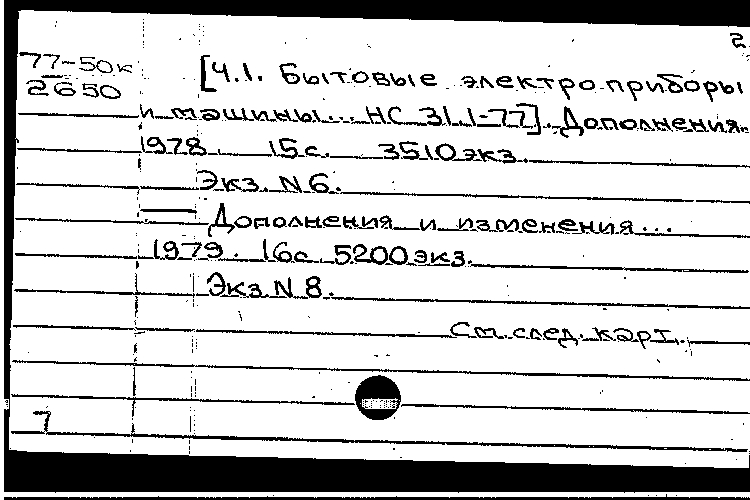 2
77-50к
2650
[Ч.1. Бытовые электроприборы
и машины... НС 31.1-77]. Дополнения.
1978. 15с. 3510экз.
Экз. N6.
— Дополнения и изменения...
1979. 16с 5200экз.
Экз N 8.
См. след. карт.
7